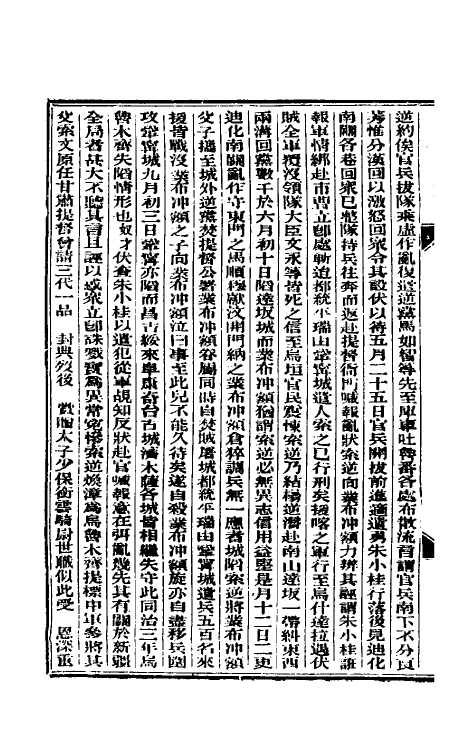 逆約俟官兵拔隊乘虛作亂復遣逆黨馬如彪等先至庫車吐魯番各處布散流言謂官兵南下不分良
莠惟分漢回以激怒回眾令其設伏以待五月二十五日官兵開拔前進適遣勇朱小桂行落後見迪化
南關各巷回眾已整隊持兵往奔而返赴提督衙門喊報亂狀索逆向業布冲額力辨其誣謂朱小桂誰
報軍情綁赴市曹立即處斬迨都統平瑞由鞏甯城遣人索之已行刑矣援喀之軍行至烏什達拉遇伏
賊全軍覆沒領隊大臣文永等皆死之信至烏垣官民震悚索逆乃結楊逆潛赴南山達坂一帶糾東西
兩溝回黨數千於六月初十日陷達坂城而業布冲額猶謂索逆必無異志信用益堅是月十二日二更
迪化南關亂作守東門之馬順糧獻汶開門納之業布冲額倉猝調兵無一應者城陷索逆將業布冲額
父子搵至城外逆黨焚提督公署業布冲額眷屬同時自焚賊屠城都統平瑞由鞏甯城遣兵五百名來
援皆戰沒業布冲額之子向業布冲額泣曰事至此兒不能久待矣遂自殺業布冲額旋亦自盡移兵圍
攻鞏甯城九月初三日鞏甯亦陷而昌吉綏來阜康奇台古城濟木薩各城皆相繼失守此同治三年烏
魯木齊失陷情形也奴才伏查朱小桂以遣犯從軍覘知反狀赴官喊報意在弭亂幾先其有關於新疆
全局者甚大不聽其言且誣以惑眾立即誅戮實為異常寃慘索逆煥漳為烏魯木齊提標中軍參將其
父索文原任甘肅提督曾請三代一品　封典歿後　賞贈太子少保銜雲騎尉世職似此受　恩深重